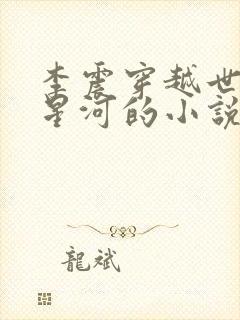 李震穿越世
星河的小說
龍斌